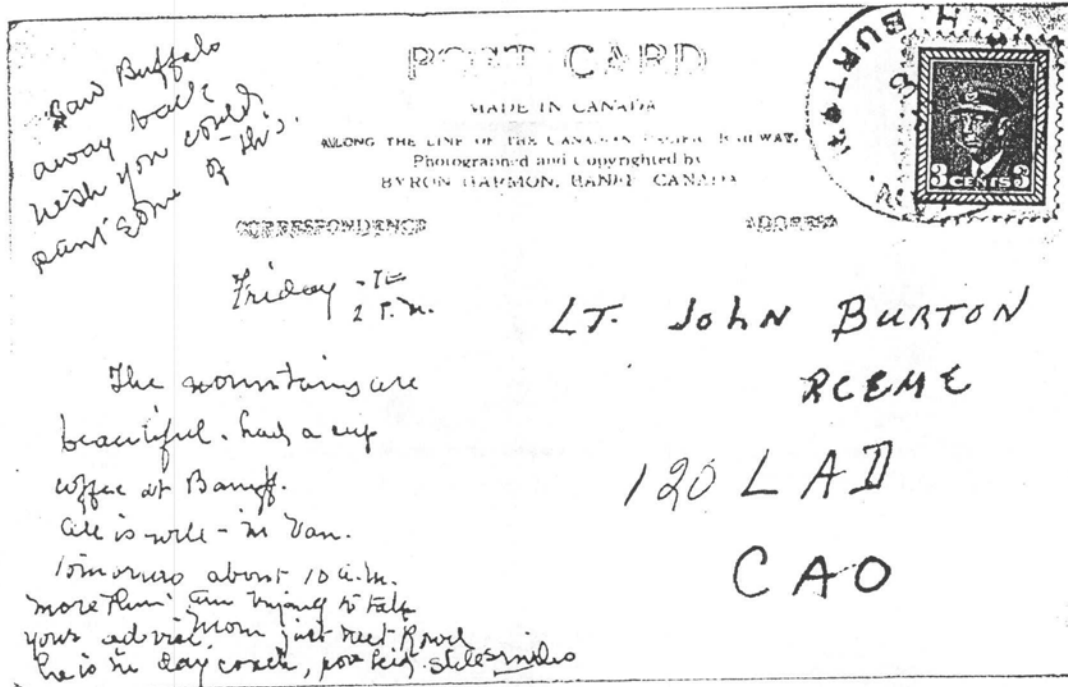 Saw Buffalo
away back
wish you could
paint some of this.
POST CARD
MADE IN CANADA
ALONG THE LINE OF THE CANADIAN PACIFIC RAILWAY.
Photographed and Copyrighted by
BYRON HARMON, BANFF CANADA
CORRESPONDENCE
ADDRESS
H. BURTON
CANADA
3 CENTS 3
Friday
2 P.M.
LT. JOHN BURTON
RCEME
120 LAD
CAO
The mountains are
beautiful. had a cup
coffee at Banff.
All is well - in Van.
tomorrow about 10 a.m.
more then. Am trying to take
your advice Mom just met
he is in day coach, poor kid. still smiles